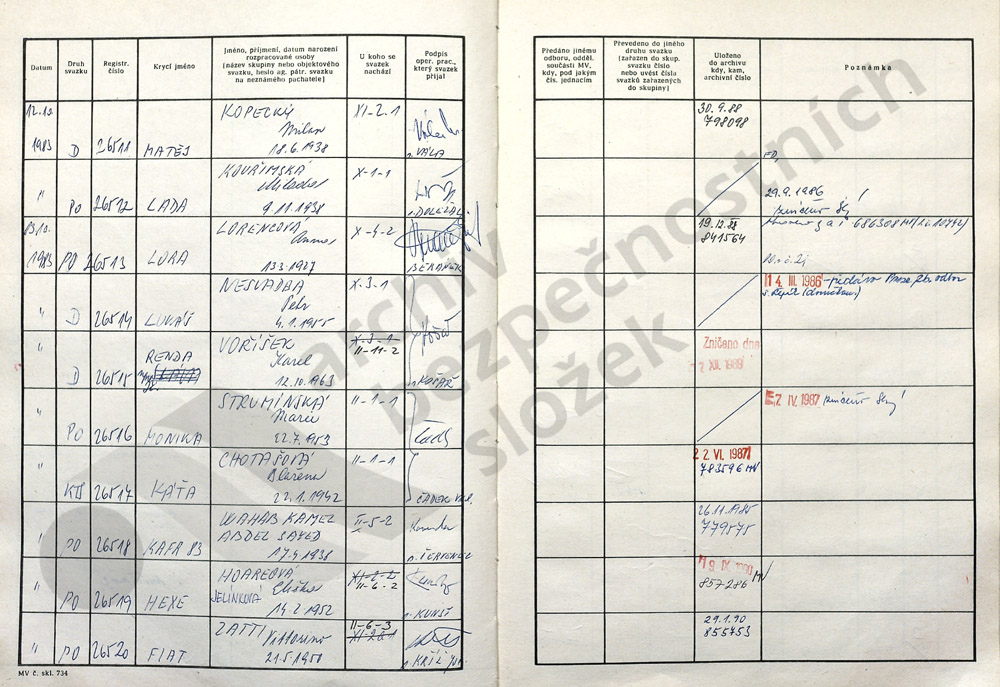 Datum
Druh
svazku
Registr.
číslo
Krycí jméno
Jméno, příjmení, datum narození
rozpracované osoby
(název skupiny nebo objektového
svazku, heslo ag. pátr. svazku
na neznámého pachatele)
U koho se
svazek
nachází
Podpis
oper. prac.,
který svazek
přijal
Předáno jinému
odboru, odděl.
součásti MV,
kdy, pod jakým
čís. jednacím
Převedeno do jiného
druhu svazku
(zařazen do skup.
svazku číslo
nebo uvést čísla
svazků zařazených
do skupiny)
Uloženo
do archivu
kdy, kam,
archivní číslo
Poznámka
12.10.
1983 D 26511 MATĚJ
KOPECKÝ
Milan
18.6.1938
XI-2-1
VÁLA
30.9.88
798098
" PO 26512 LADA
KOUŘIMSKÁ
9.11.1938
X-1-1
DOLEŽAL
29.9.1986
13.10.
1983 PO 26513 LORA
LORENCOVÁ
13.3.1927
X-4-2
BERÁNEK
19.12.88
841564
" D 26514 LUKÁŠ
NESVADBA
Petr
4.1.1955
X-3-1
14. III. 1986
" D 26515 RENDA
VOŘÍŠEK
Karel
12.10.1963
X-3-1
II-11-2
KOTÁŘ
Zničeno dne
XII. 1989
" PO 26516 MONIKA
STRUMÍNSKÁ
Marie
22.7.1953
II-1-1
IV. 1987
" KTS 26517 KÁŤA
CHOTAŠOVÁ
Blažena
22.1.1942
II-1-1
ČADEK
22. VI. 1987
783596 MV
" PO 26518 KAFR 83
WAHAB KAMEL
ABDEL SAYED
17.4.1938
II-5-2
ČERVENKA
26.11.1985
779575
" PO 26519 HEXE
HOAREOVÁ
JELÍNKOVÁ Eliška
14.2.1952
XI-2-2
II-6-2
KUNST
19. IX. 1990
857286 MV
" PO 26520 FIAT
ZATTI Vittorino
21.5.1950
II-6-3
KŘÍŽ
29.1.90
855753
MV č. skl. 734
archiv
bezpečnostních
složek